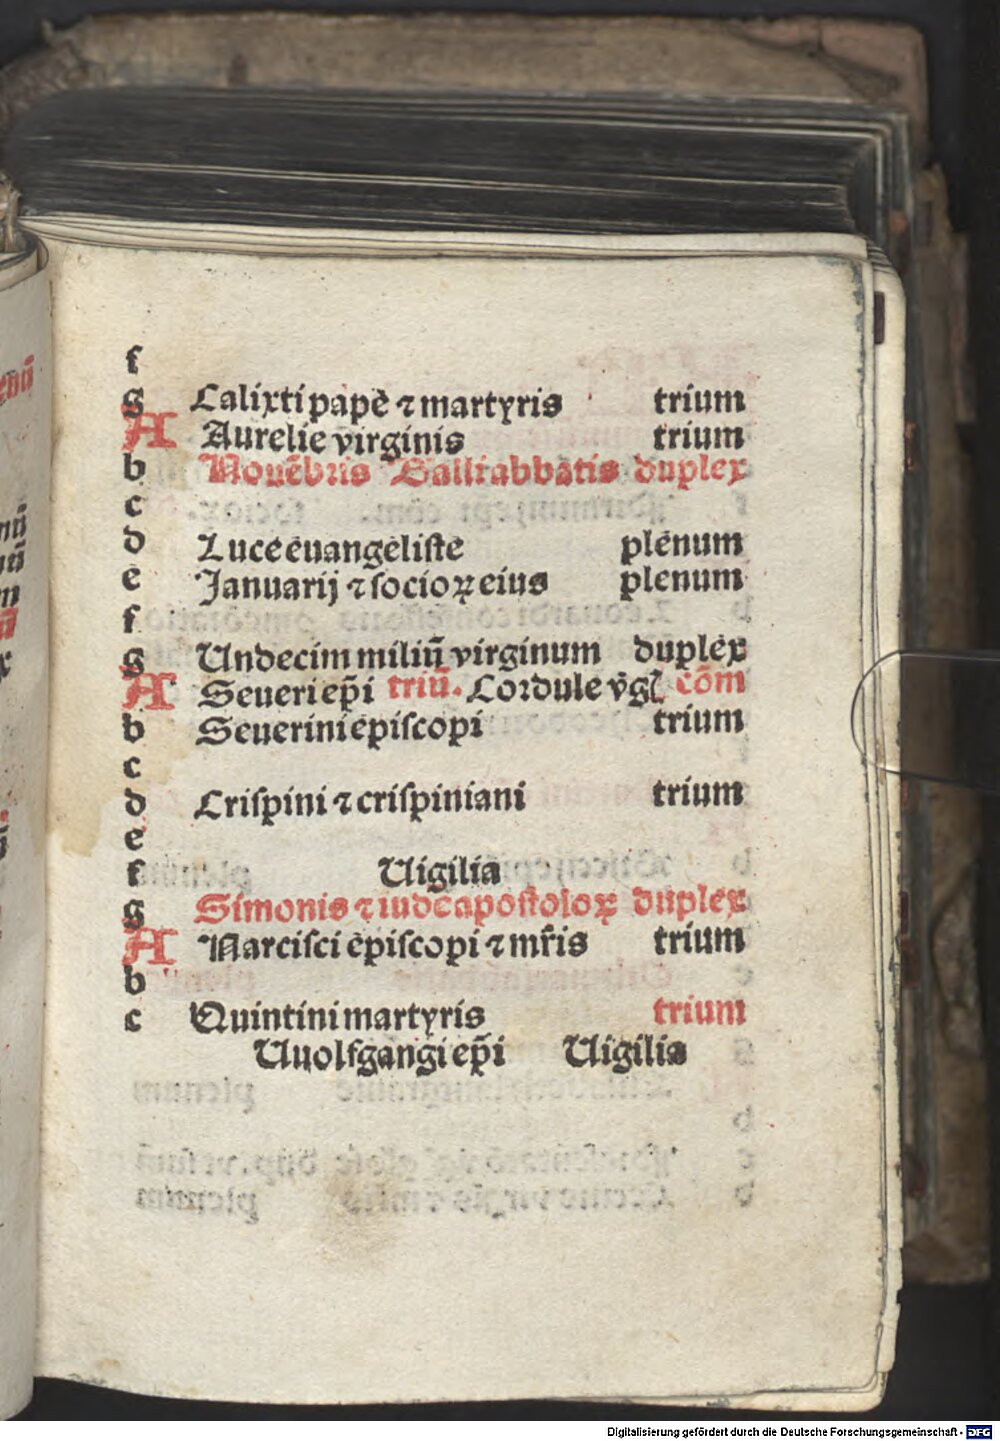 f
g Calixti papẽ ⁊ martyris trium
A Aurelie virginis trium
b Nouẽbris Galli abbatis duplex
c
d Luce euangeliste plenum
e Januarij ⁊ socioꝝ eius plenum
f
g Undecim miliũ virginum duplex
A Seueri ep̃i triũ. Cordule v̄gĩ cõm
b Seuerini episcopi trium
c
d Crispini ⁊ crispiniani trium
e
f Uigilia
g Simonis ⁊ iude apostoloꝝ duplex
A Narcisci episcopi ⁊ mr̃is trium
b
c Quintini martyris trium
Uuolfgangi ep̃i Uigilia
Digitalisierung gefördert durch die Deutsche Forschungsgemeinschaft - DFG